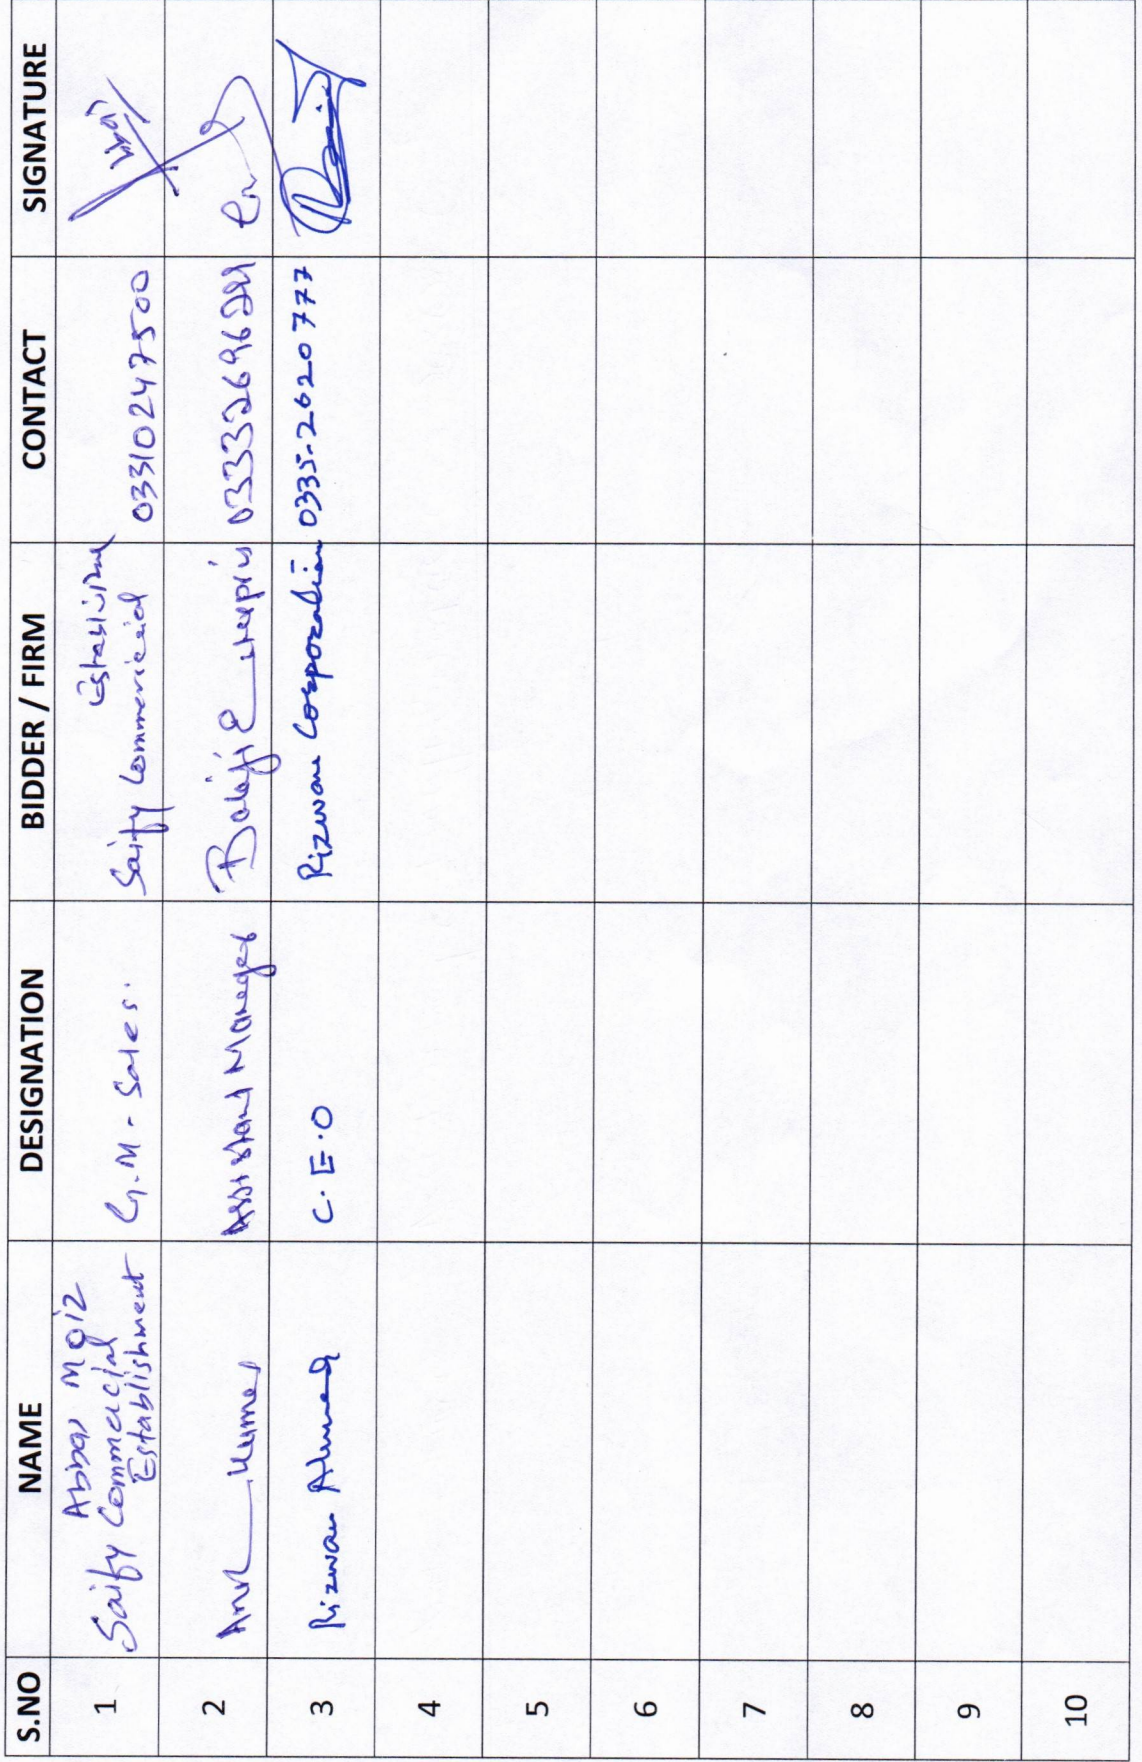 S.NO NAME DESIGNATION BIDDER / FIRM CONTACT SIGNATURE
1 Abbas Moiz Saify Commercial Establishment G.M - Sales. Saify Commericial 03310247500
2 Anil Kumar Assistant Manager Balaji 03332696
3 Rizwan Ahmed C.E.O Rizwan Corporation 0335-2620777
4
5
6
7
8
9
10